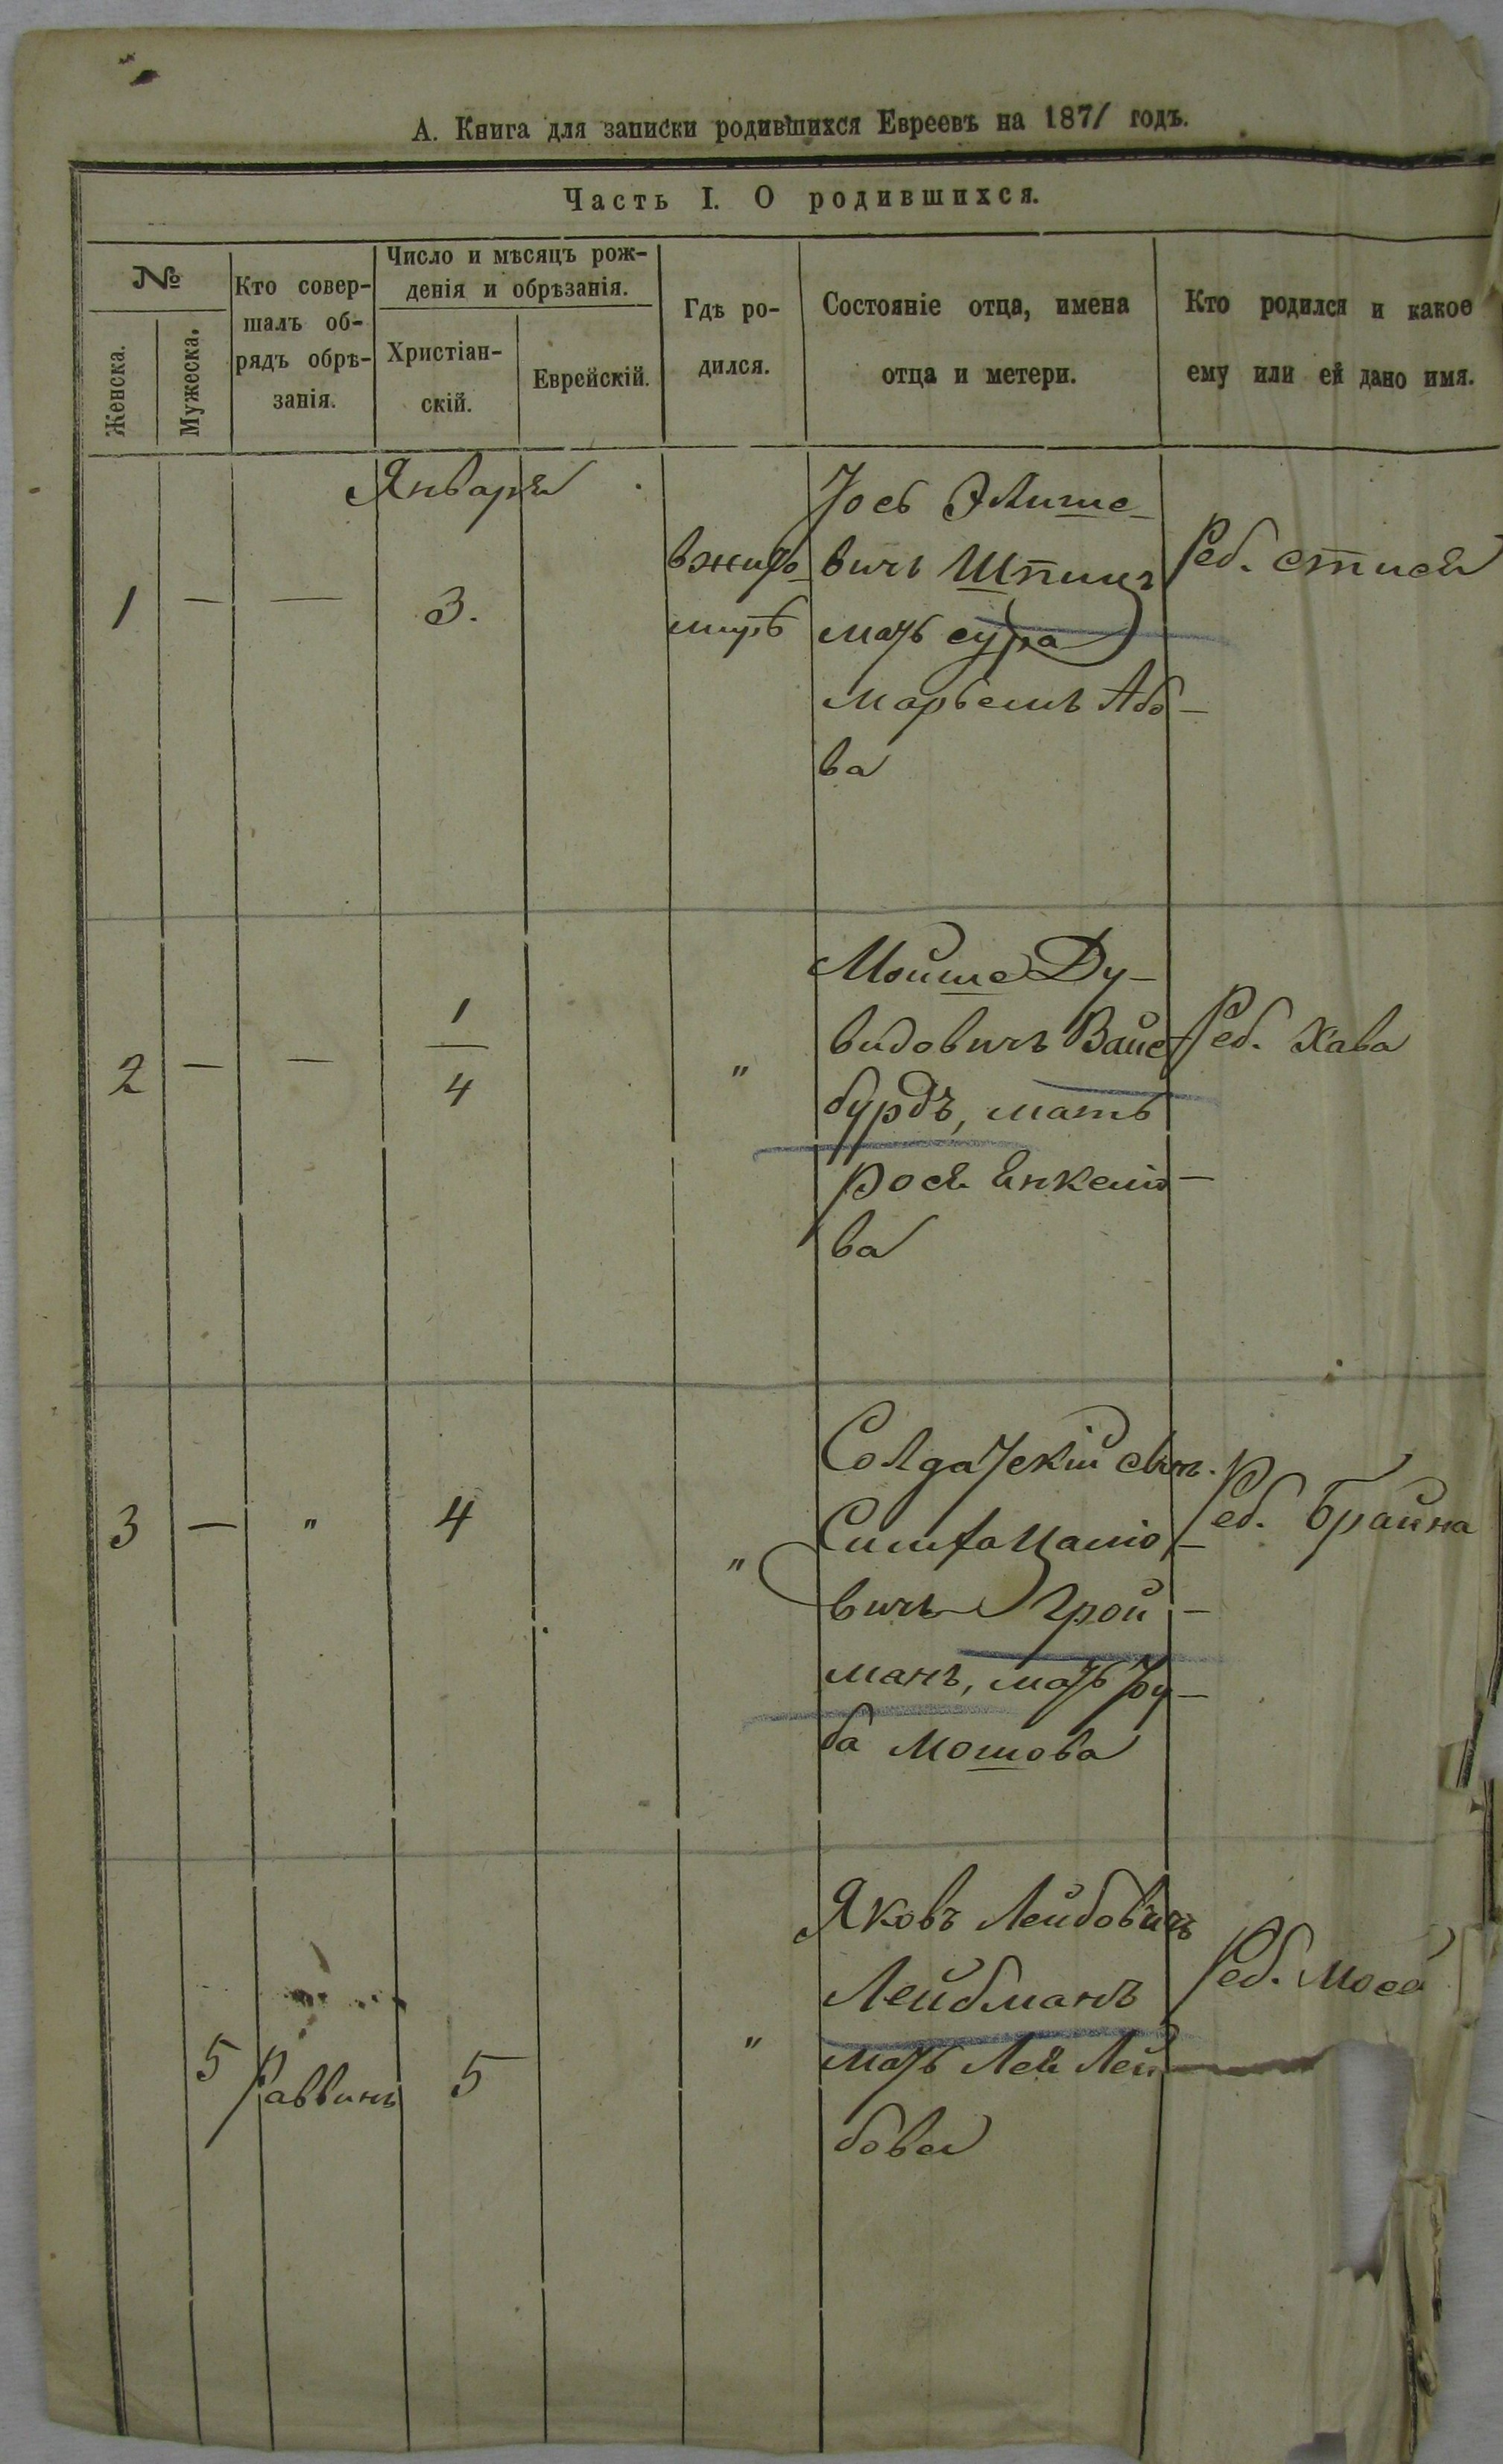 А. Книга для записки родившихся Евреевъ на 1871 годъ.
Часть I. О родившихся.
№
Женска.
Мужеска.
Кто совер-
шалъ об-
рядъ обрѣ-
занія.
Число и мѣсяцъ рож-
денія и обрѣзанія.
Христіан-
скій.
Еврейскій.
Гдѣ ро-
дился.
Состояніе отца, имена
отца и метери.
Кто родился и какое
ему или ей дано имя.
Января
1 — — 3.
вжито
мирѣ
Іось
вичъ Шпиць
мать сура
Або-
ва
Реб. стися
2 — — 1
4
"
Мойше Ду-
видовичъ Вайс-
бурдъ, мать
рося Енкелио-
ва
Реб. Хава
3 — " 4
"
Солдатскій сынъ.
вичъ Грой-
манъ, мать Ру-
ба Мошова
Реб. Брайна
5 Раввинъ 5
"
Яковъ Лейбовичъ
Лейбманъ
мать Лея Лей
бова
Реб.